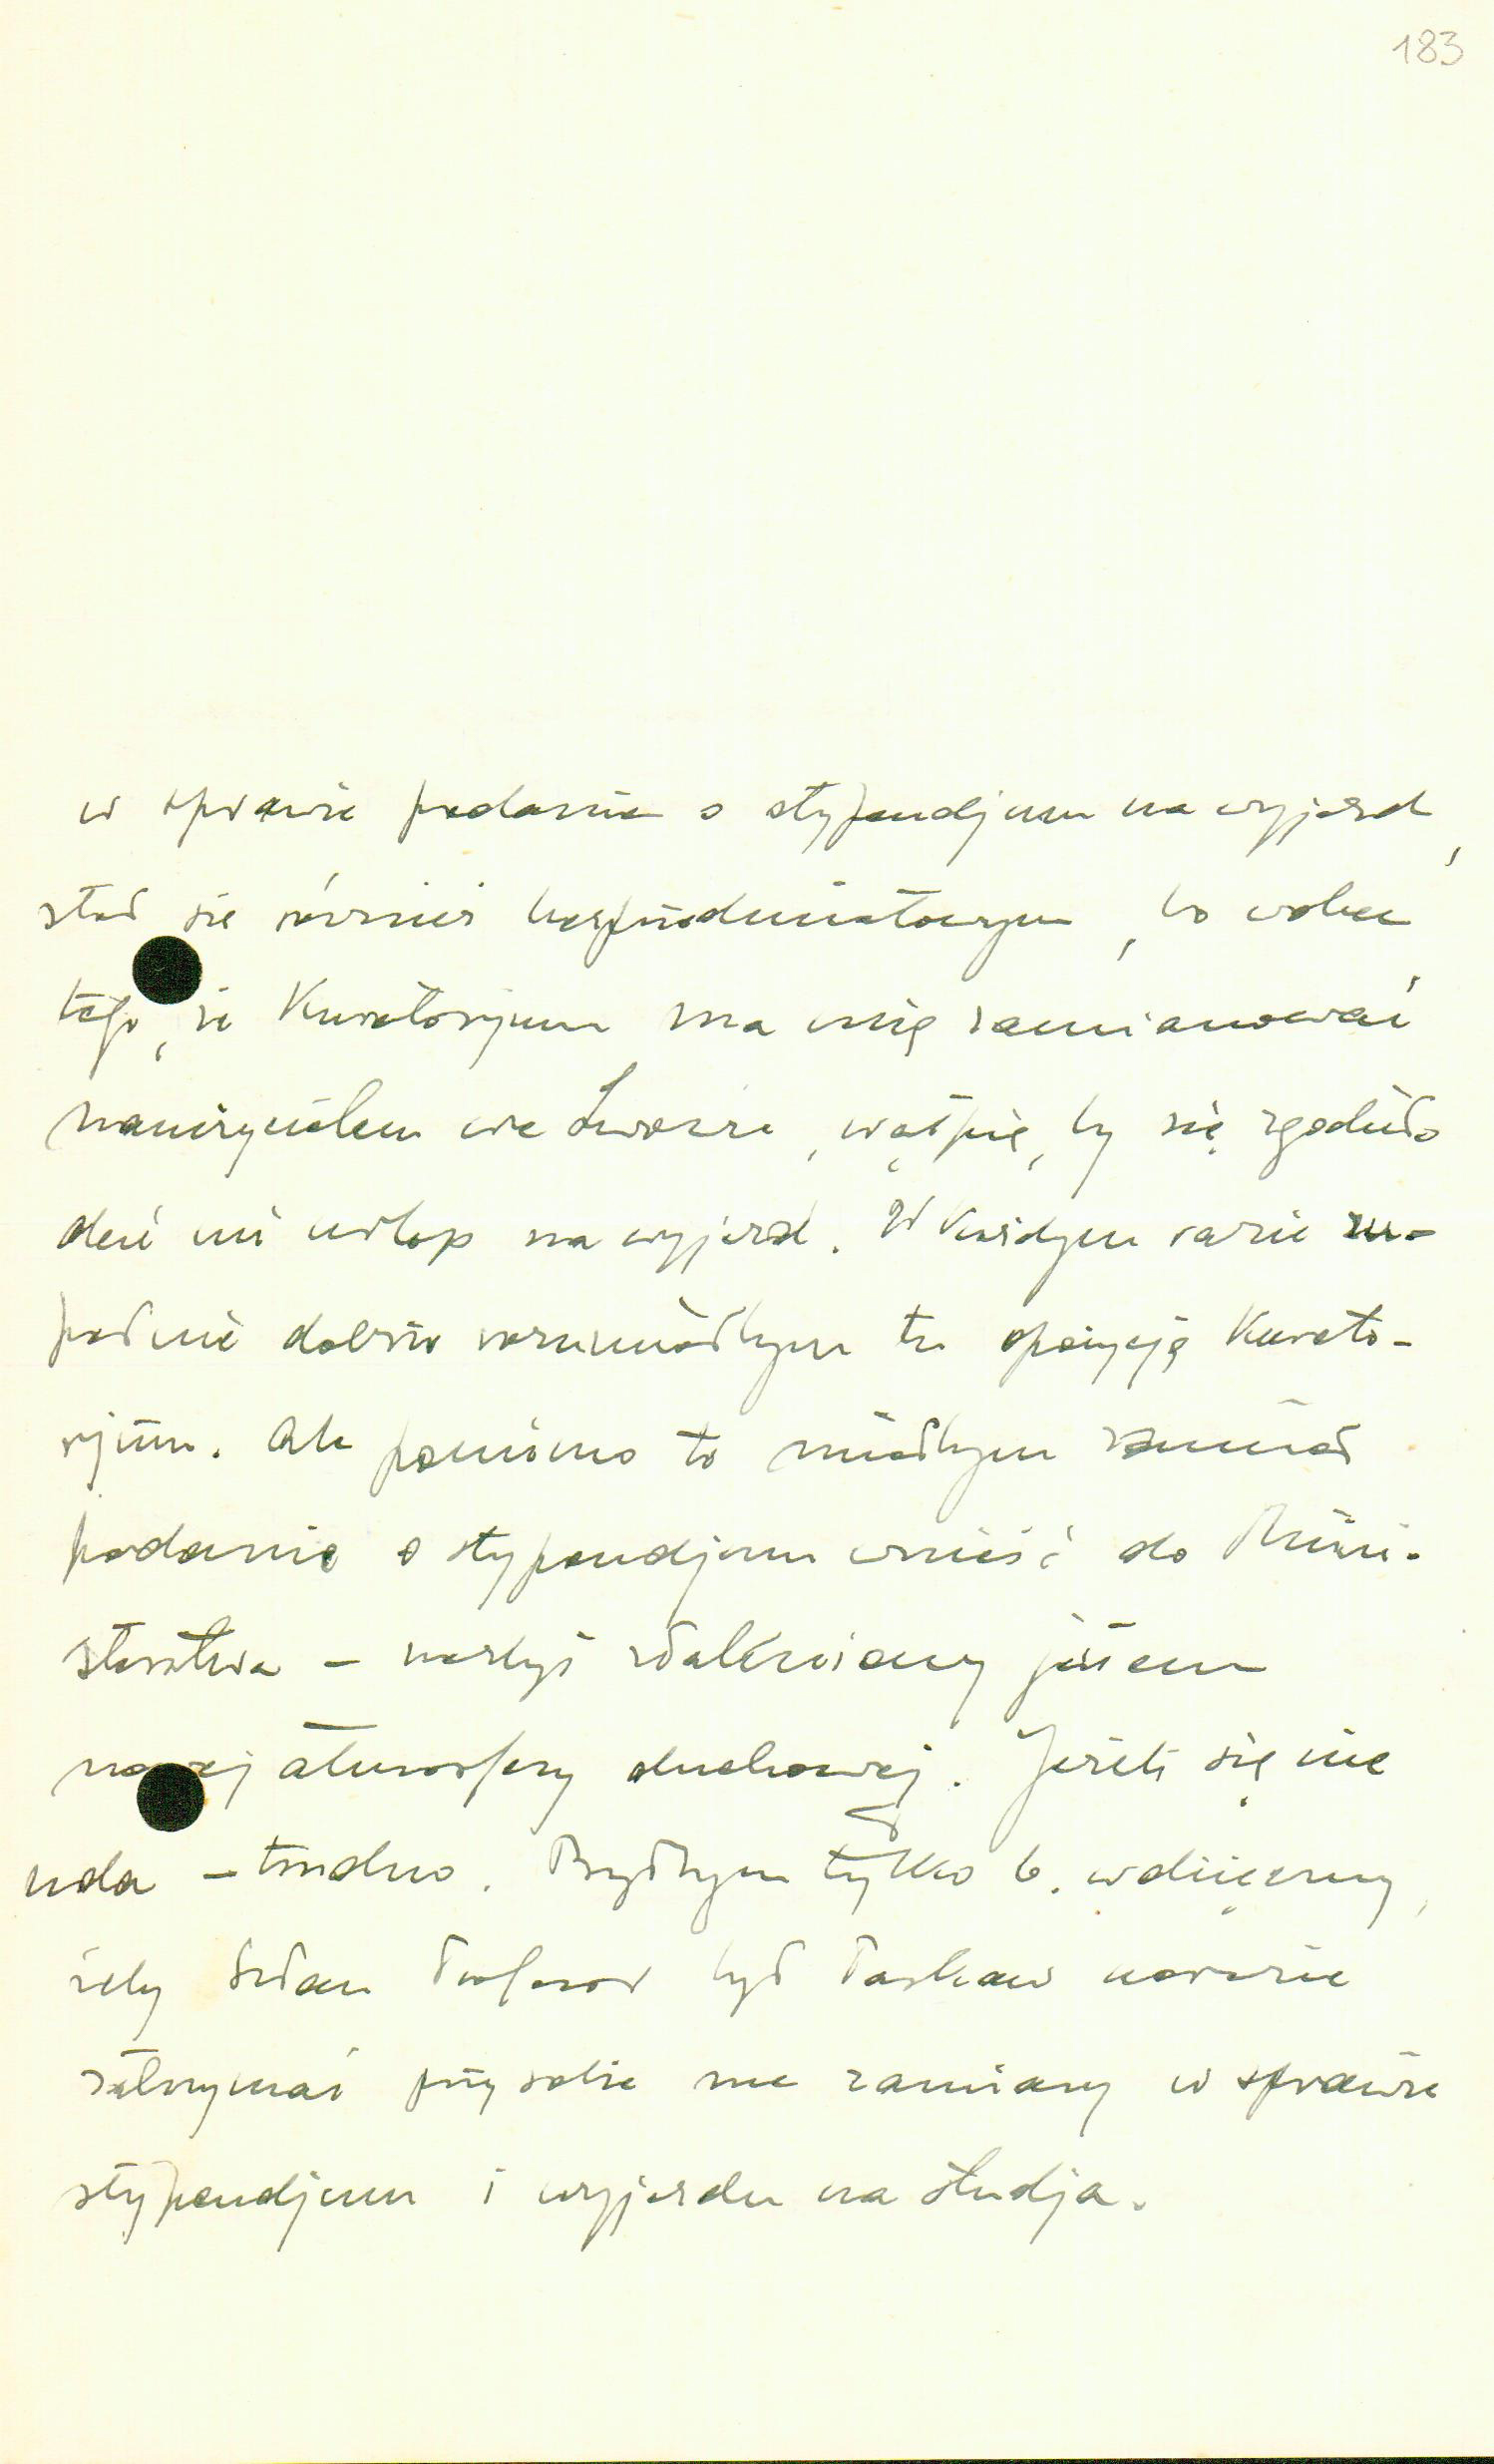 183
w sprawie podania o stypendjum na wyjazd,
stał się również bezprzedmiotowym, bo wobec
tego, że Kuratorjum ma mię zamianować
nauczycielem we Lwowie, wątpię, by się zgodziło
dać mi urlop na wyjazd. W każdym razie zu-
pełnie dobrze rozumiałbym tu opozycję Kurato-
rjum. Ale pomimo to miałbym zamiar
podanie o stypendjum wnieść do Mini-
sterstwa – nazbyt złakniony jestem
nowej atmosfery duchowej. Jeżeli się nie
uda – trudno. Byłbym tylko b. wdzięczny,
żeby Profesor był łaskaw narazie
zatrzymać przy sobie me zamiary w sprawie
stypendjum i wyjazdu na studja.